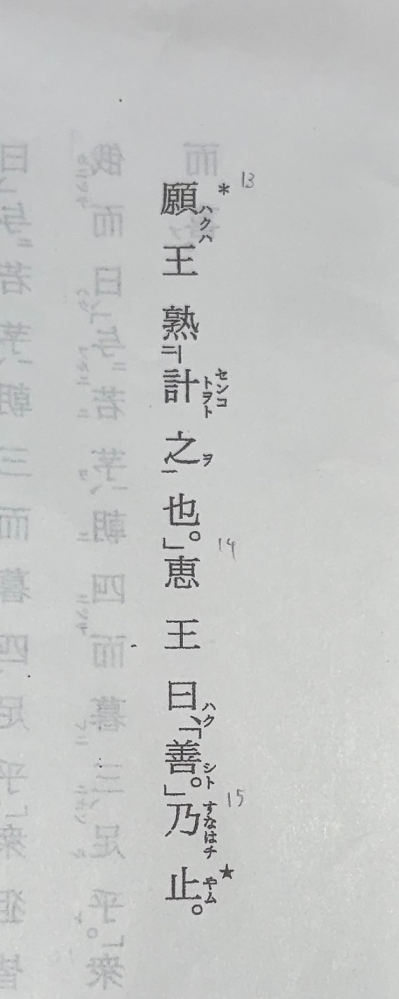 願ハクハ王熟二計センコトヲト之ヲ一也。」恵王曰ハク、「善シト。」乃すなはチ止やム。
* 13
14
15
★